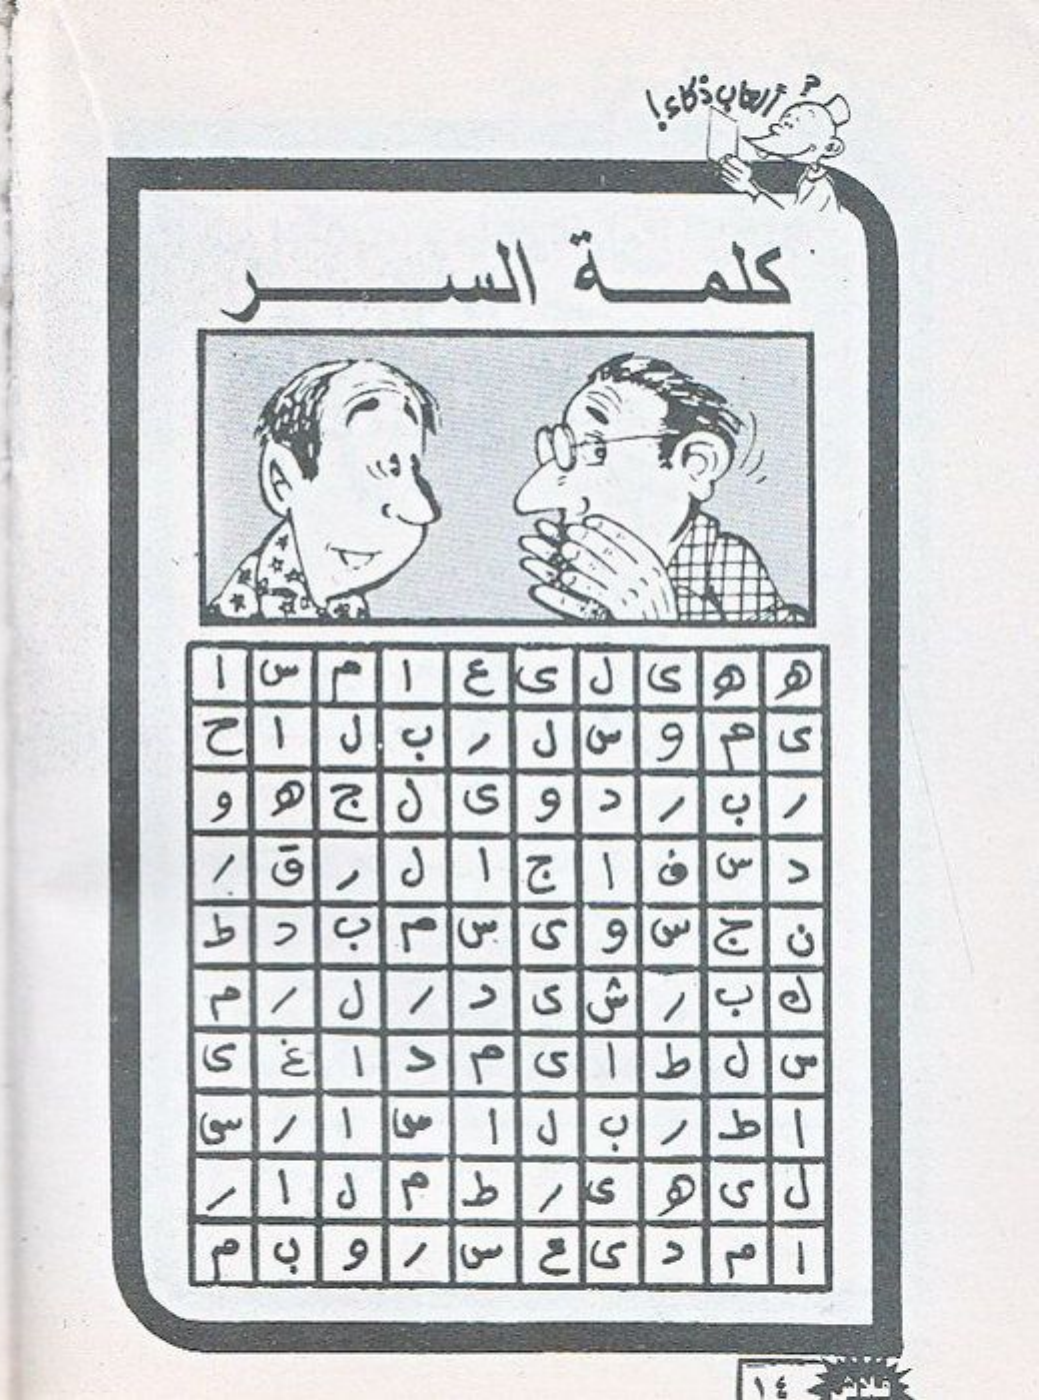 ألعاب ذكاء!
?
كلمة السر
ه ه ى ل ى ع ا م س ا
ى م و س ل ر ب ل ا ح
ر ب ر د و ى ل ج ه و
د س ف ا ج ا ل ر ق ر
ن ج س و ى س م ب د ط
ك ب ر ش ى د ر ل ر م
س ل ط ا ى م د ا غ ى
ا ط ر ب ل ا س ا ر س
ل ى ه ى ر ط م ل ا ر
ا م د ى ع س ر و ب م
١٤
فلاش